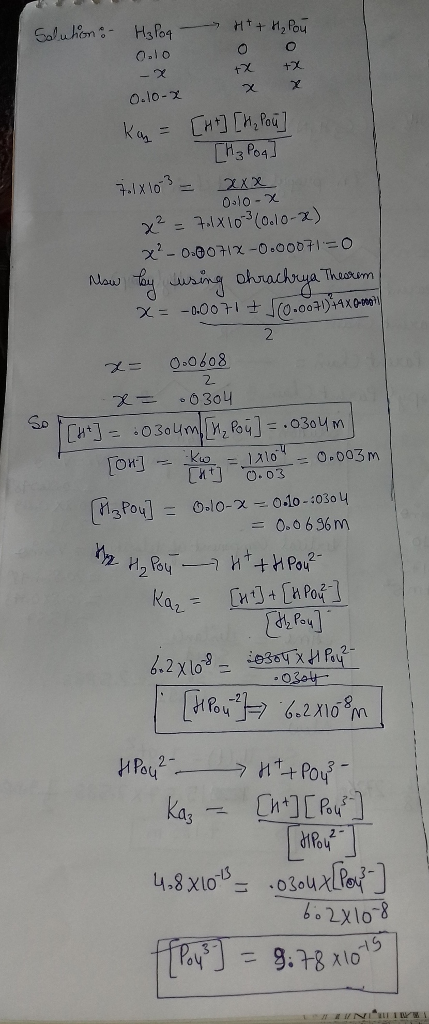 Solution:- H3Po4 ⟶ H+ + H2Po4-
0.10 0 0
-x +x +x
0.10-x x x
Ka1 = [H+] [H2Po4-] / [H3Po4]
7.1x10-3 = x x x / 0.10-x
x2 = 7.1x10-3(0.10-x)
x2 - 0.0071x - 0.00071 = 0
Now by using Theorem
x = -0.0071 ± √(0.0071)2+4x0.00071 / 2
x = 0.0608 / 2
x = .0304
So [H+] = .0304m, [H2Po4-] = .0304m
[OH-] = Kw / [H+] = 1x10-4 / 0.03 = 0.003m
[H3Po4] = 0.10-x = 0.10-.0304
= 0.0696m
H2Po4- ⟶ H+ + HPo42-
Ka2 = [H+] + [HPo42-] / [H2Po4-]
6.2x10-8 = .0304 x HPo42- / .0304
[HPo4-2] ⇒ 6.2x10-8m
HPo42- ⟶ H+ + Po43-
Ka3 = [H+] [Po43-] / [HPo42-]
4.8x10-13 = .0304x[Po43-] / 6.2x10-8
[Po43-] = 9.78x10-15